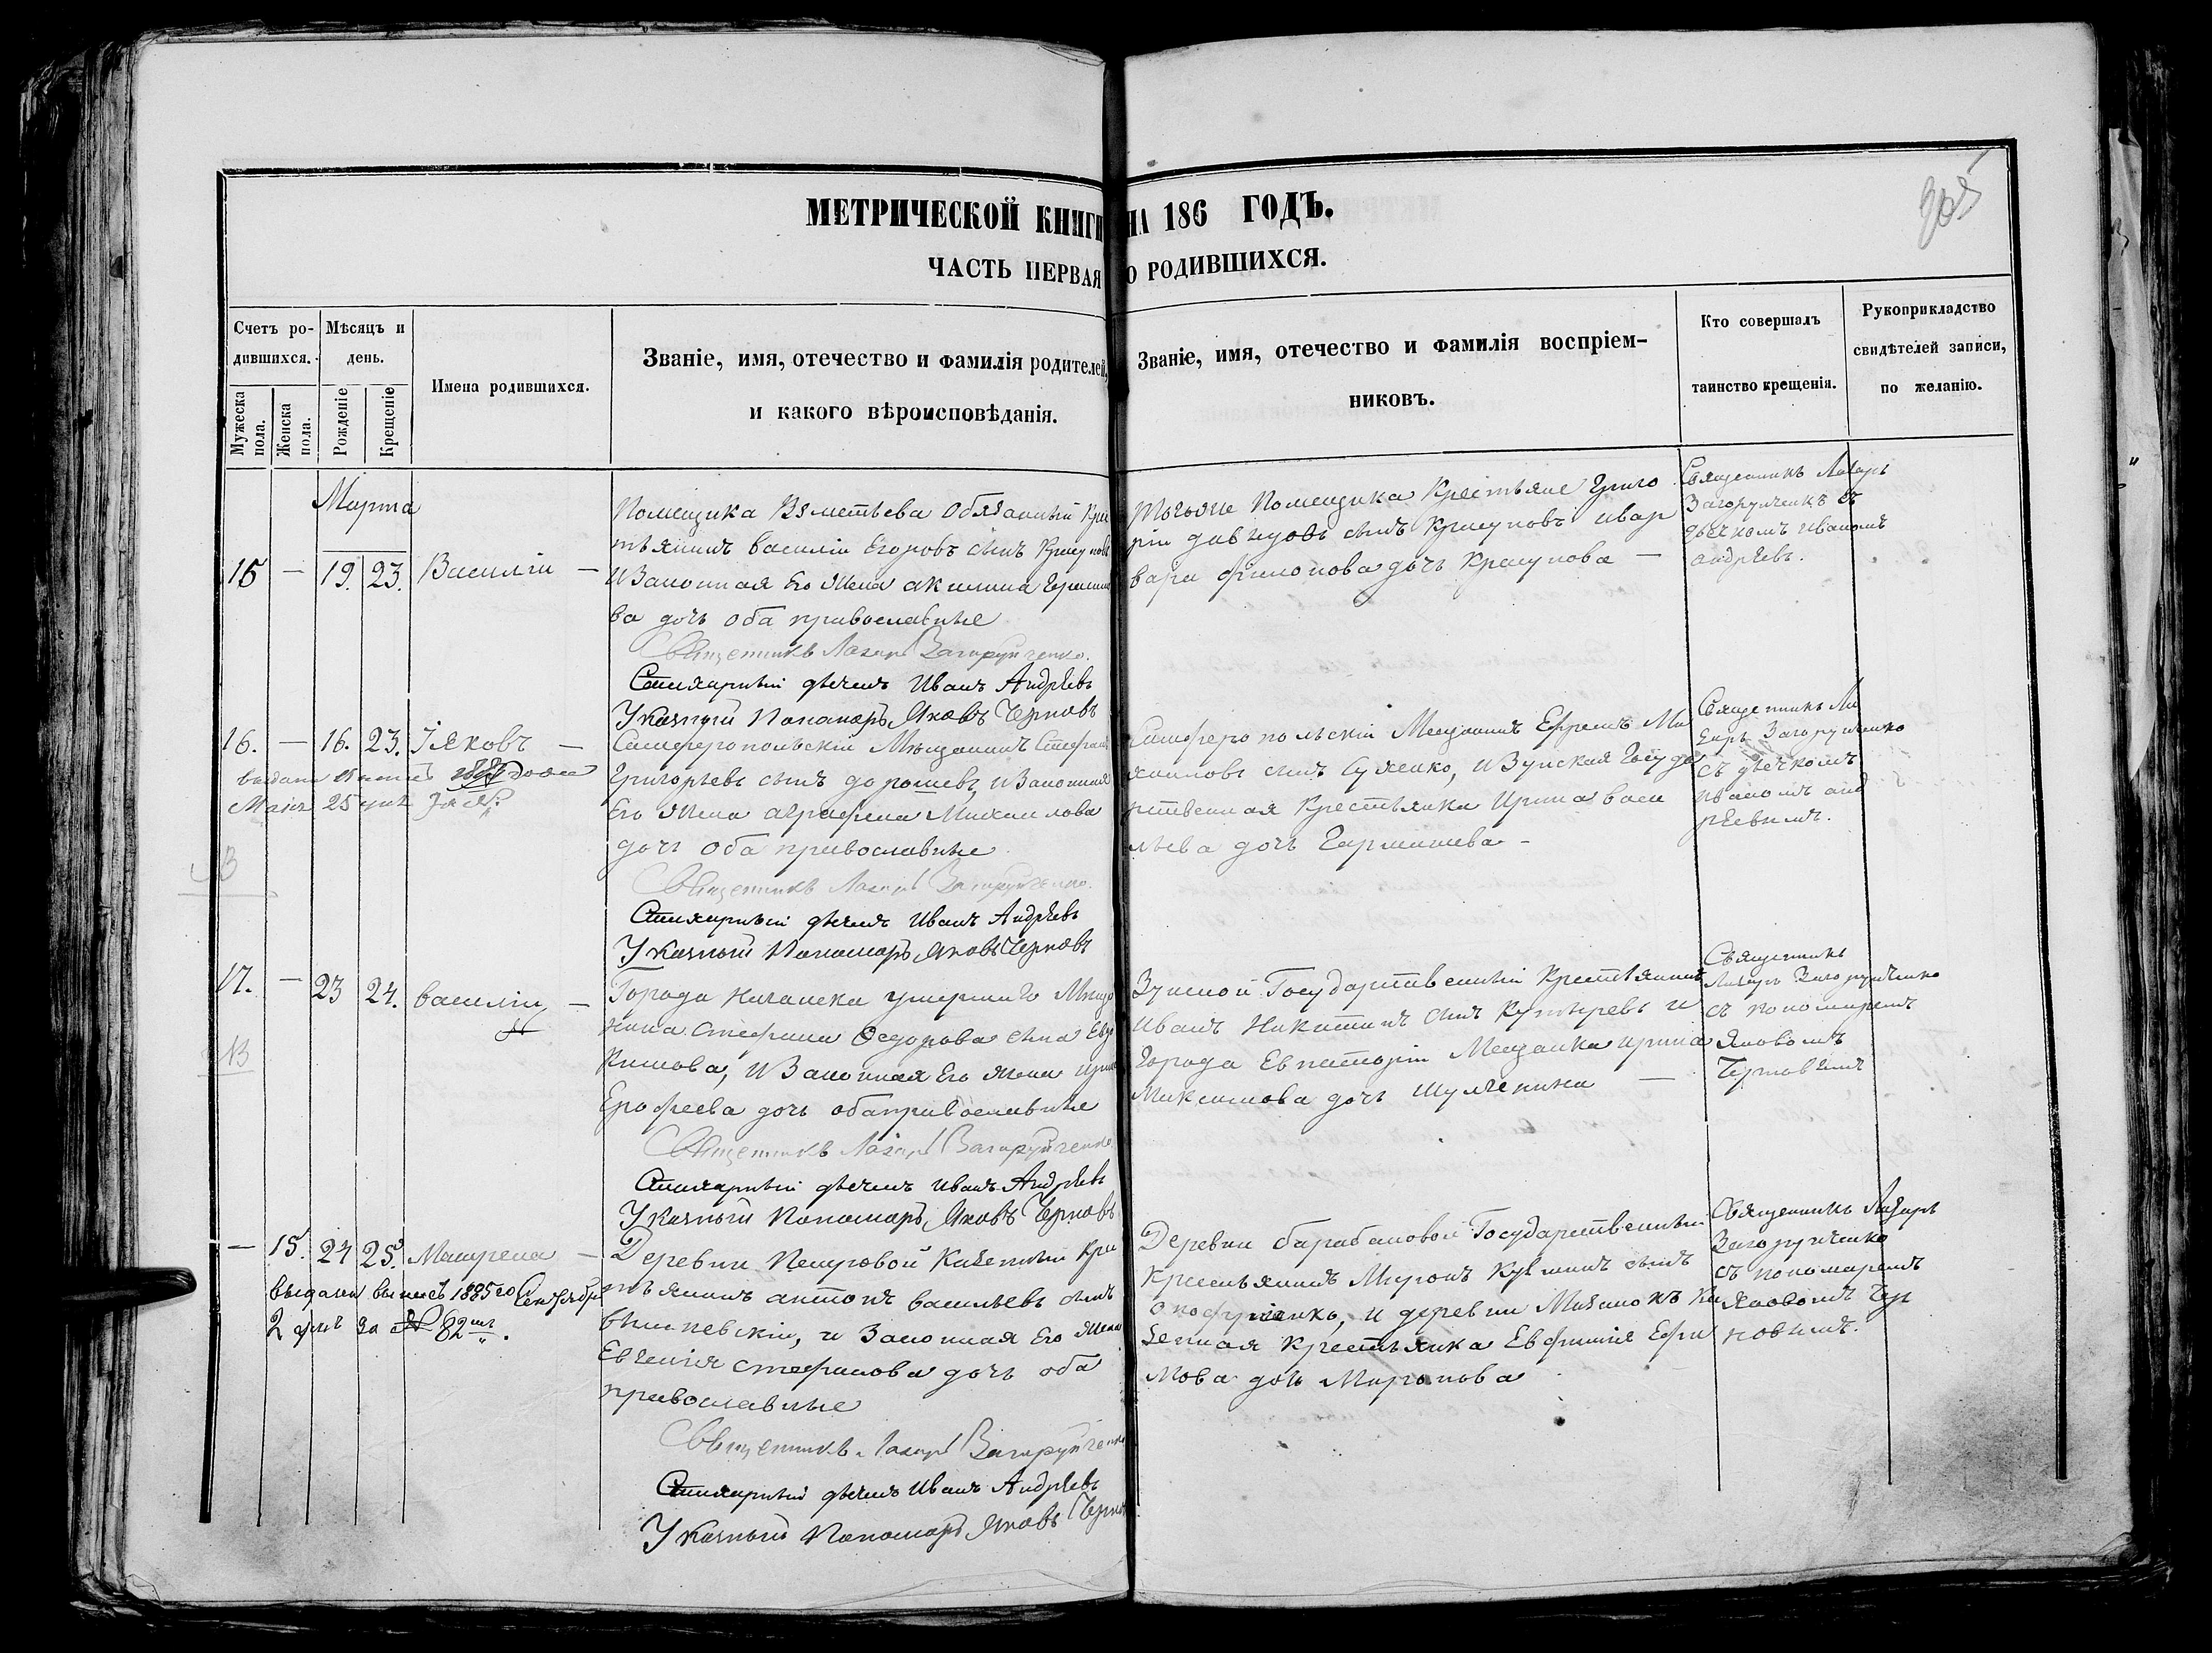 МЕТРИЧЕСКОЙ КНИГИ НА 186 ГОДЪ.
305
ЧАСТЬ ПЕРВАЯ О РОДИВШИХСЯ.
Счетъ ро-
дившихся.
Мужеска пола.
Женска пола.
Мѣсяцъ и
день.
Рожденіе
Крещеніе
Имена родившихся.
Званіе, имя, отечество и фамилія родителей,
и какого вѣроисповѣданія.
Званіе, имя, отечество и фамилія воспріем-
никовъ.
Кто совершалъ
таинство крещенія.
Рукоприкладство
свидѣтелей записи,
по желанію.
Марта
15 — 19. 23. Василій —
Помещика Обязанный Крес
тьянинъ василіи Егоровъ сынъ
и Законная Его Жена акилина
ва дочь оба православные
Священникъ Лазарь Загоруйченко.
Стихарный дьячекъ Иванъ Андрѣевъ
Указный Пономарь Яковъ Черновъ
Тогоже Помещика Крестьяне Григо
рій сынъ и вар
вара дочь —
Священникъ Лазарь
Загоруйченкъ съ
дьячкомъ Иваномъ
андрѣевъ.
16. — 16. 23. Іяковъ —
выдана
Маія 25 дня
Симферопольскій Мещанинъ Стефанъ
Григорьевъ сынъ дорошевъ, и Законная
Его Жена аграфена Михаилова
дочь оба православные
Священникъ Лазарь Загоруйченко.
Стихарный дьячекъ Иванъ Андрѣевъ
Указный Пономарь Яковъ Черновъ
Симферопольскій Мещанинъ Ефремъ Ма
сынъ Сухенко, и Зуйская Госуда
рственная Крестьянка Ирина васи
льева дочь —
Священникъ Ла
зарь Загоруйченко
съ дьячкомъ
иваномъ анд
рѣевымъ.
17. — 23 24. василій —
Города умершаго Мещя
нина Стефана Ѳедорова сына
и Законная Его жена
Ерофеева дочь оба православные
Священникъ Лазарь Загоруйченко
Стихарный дьячекъ Иванъ Андрѣевъ
Указный Пономарь Яковъ Черновъ
Зуйской Государственный Крестьянинъ
Иванъ Никитинъ сынъ и
Города Евпаторіи Мещанка ирина
Максимова дочь —
Священникъ
Лазарь Загоруйченко
съ пономаремъ
Яковомъ
Черновымъ
— 15. 24 25. Макрена —
выдана выпись 1885 го Сентября
2 дня за № 82мъ.
Деревни Казенный Крес
тьянинъ антонъ васильевъ сынъ
вишневскій, и Законная Его Жена
Евгенія стефанова дочь оба
православные
Священникъ Лазарь Загоруйченко
Стихарный дьячекъ Иванъ Андрѣевъ
Указный Пономарь Яковъ Черновъ
Деревни барабановой Государственный
крестьянинъ Миронъ сынъ
и деревни Мазанокъ Ка
зенная Крестьянка Евфимія Ефи
мова дочь Миронова
Священникъ Лазарь
Загоруйченко
съ пономаремъ
Яковомъ Чер
новымъ.